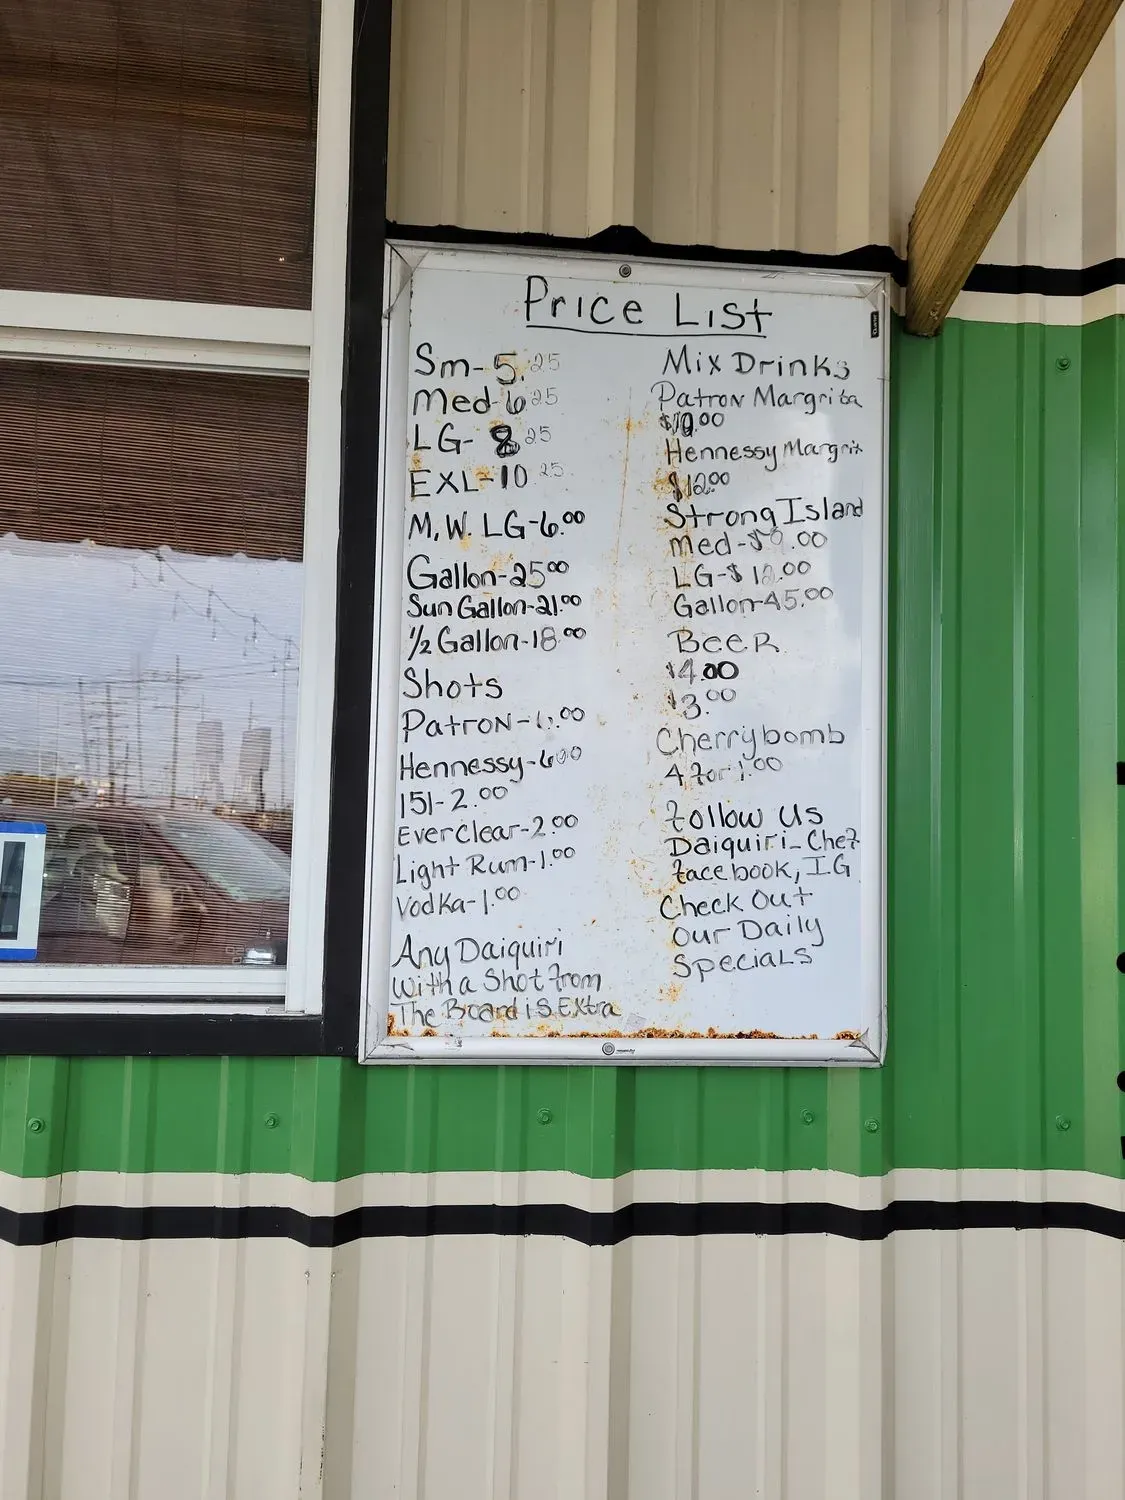 Price List
Sm-5.25
Med-6.25
LG-8 25
EXL-10 25
M.W. LG-6.00
Gallon-25.00
Sun Gallon-21.00
1/2 Gallon-18.00
Shots
Patron-6.00
Hennessy-6.00
151-2.00
Everclear-2.00
Light Rum-1.00
Vodka-1.00
Any Daiquiri
With a Shot from
The Board is Extra
Mix Drinks
Patron Margrita
Hennessy Margrit
$12.00
Strong Island
Med-
LG-$12.00
Gallon-45.00
Beer
$4.00
$3.00
Cherrybomb
4 for 1.00
Follow Us
Daiquiri_Chef
facebook, I.G
Check Out
Our Daily
Specials